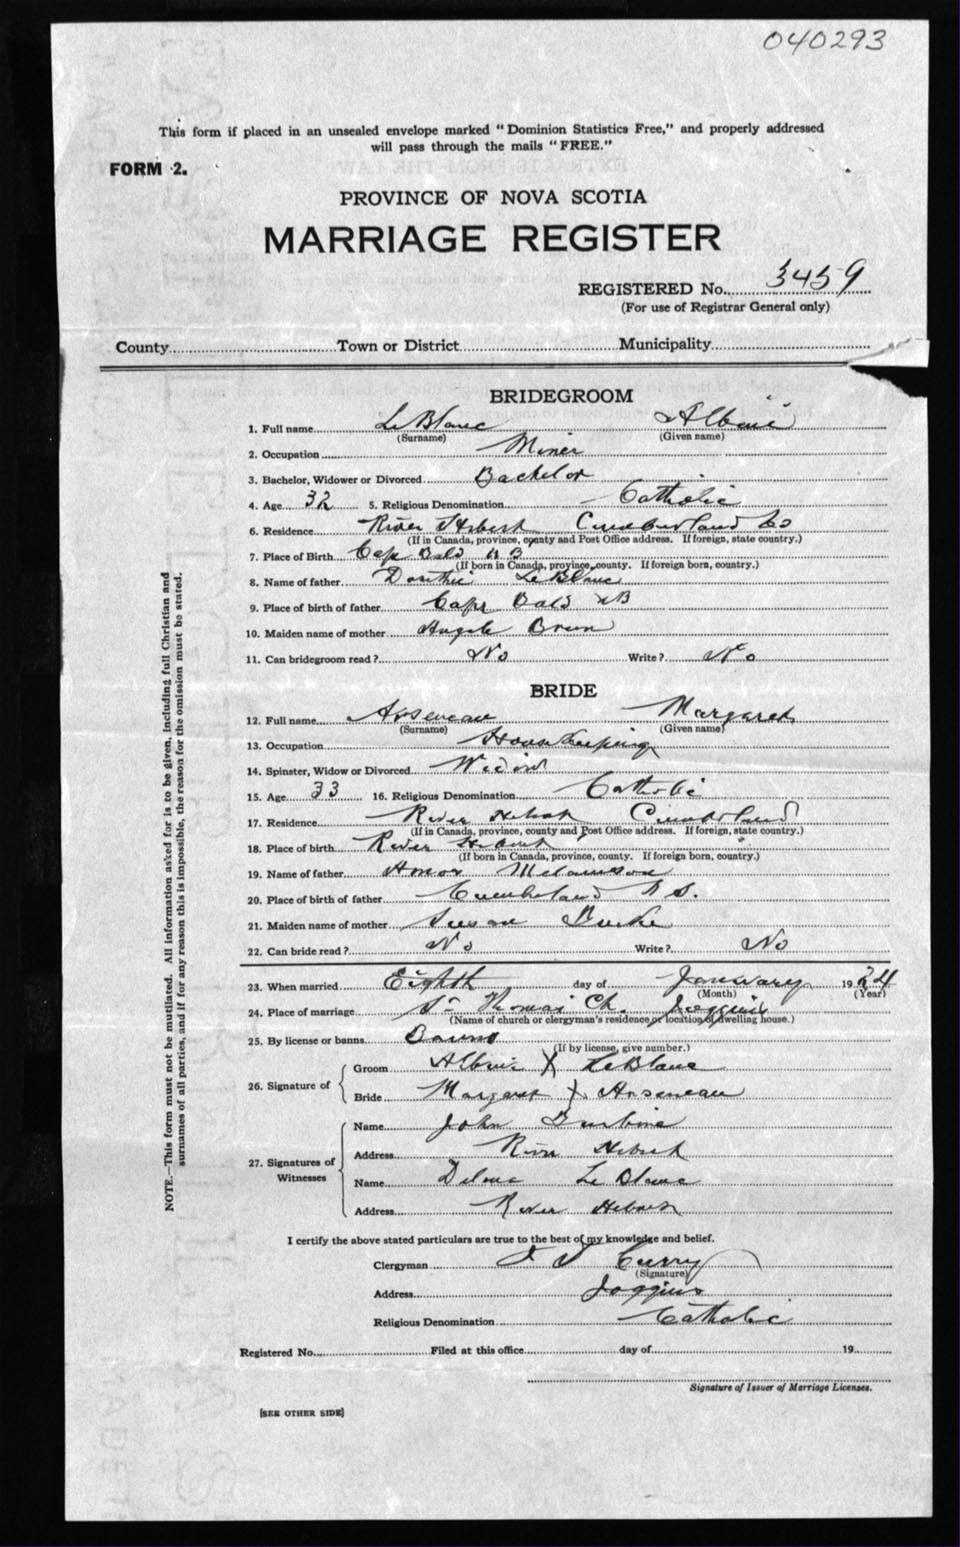 040293
This form if placed in an unsealed envelope marked "Dominion Statistics Free," and properly addressed
will pass through the mails "FREE."
FORM 2.
PROVINCE OF NOVA SCOTIA
MARRIAGE REGISTER
REGISTERED No. 3459
(For use of Registrar General only)
County Town or District Municipality
BRIDEGROOM
1. Full name LeBlanc Albenie
(Surname) (Given name)
2. Occupation Miner
3. Bachelor, Widower or Divorced Bachelor
4. Age 32 5. Religious Denomination Catholic
6. Residence River Hebert Cumberland Co
(If in Canada, province, county and Post Office address. If foreign, state country.)
7. Place of Birth Cap Bald N B
(If born in Canada, province, county. If foreign born, country.)
8. Name of father LeBlanc
9. Place of birth of father Cape Bald NB
10. Maiden name of mother Angele Brun
11. Can bridegroom read? No Write? No
BRIDE
12. Full name Arseneau Margaret
(Surname) (Given name)
13. Occupation Housekeeping
14. Spinster, Widow or Divorced Widow
15. Age 33 16. Religious Denomination Catholic
17. Residence River Hebert Cumberland
(If in Canada, province, county and Post Office address. If foreign, state country.)
18. Place of birth River Hebert
(If born in Canada, province, county. If foreign born, country.)
19. Name of father Amos Melanson
20. Place of birth of father Cumberland N S.
21. Maiden name of mother Susan Burke
22. Can bride read? No Write? No
23. When married Eighth day of January 1924
(Month) (Year)
24. Place of marriage St Thomas Ch. Joggins
(Name of church or clergyman's residence or location of dwelling house.)
25. By license or banns Banns
(If by license, give number.)
26. Signature of
Groom Albenie X LeBlanc
Bride Margaret X Arseneau
27. Signatures of Witnesses
Name John
Address River Hebert
Name Delma LeBlanc
Address River Hebert
I certify the above stated particulars are true to the best of my knowledge and belief.
Clergyman Curry
(Signature)
Address Joggins
Religious Denomination Catholic
Registered No. Filed at this office day of 19
Signature of Issuer of Marriage Licenses.
[SEE OTHER SIDE]
NOTE.—This form must not be mutilated. All information asked for is to be given, including full Christian and
surnames of all parties, and if for any reason this is impossible, the reason for the omission must be stated.